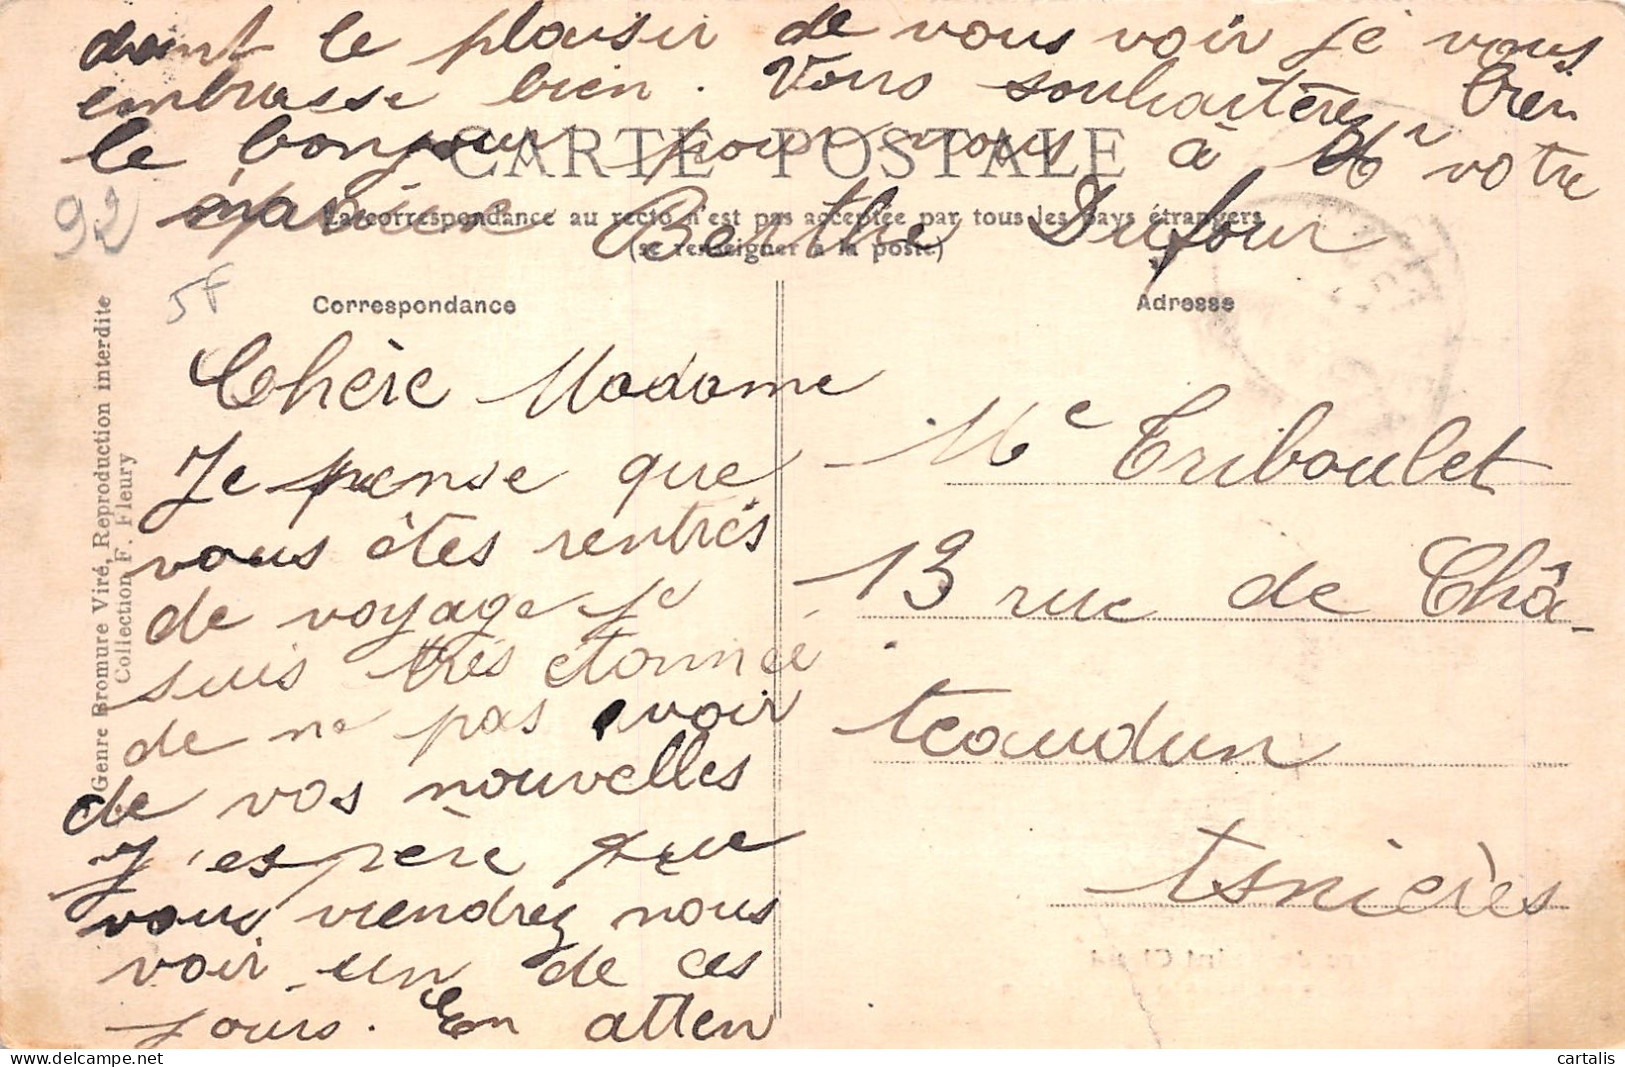 dant le plaisir de vous voir je vous
embrasse bien. Vous souhaitère bien
le bonjour pour nous à Mr votre
CARTE POSTALE
Berthe Dufour
La correspondance au recto n'est pas acceptée par tous les pays étrangers
(se renseigner à la poste)
92
5F
Correspondance
Adresse
Genre Bromure Viré, Reproduction interdite
Collection F. Fleury
Chère Madame
Je pense que
vous êtes rentrés
de voyage je
suis très étonnée
de ne pas avoir
de vos nouvelles
J'espère que
vous viendrez nous
voir un de ces
jours. En atten
Me Triboulet
13 rue de Châ-
teaudun
Asnières
cartalis